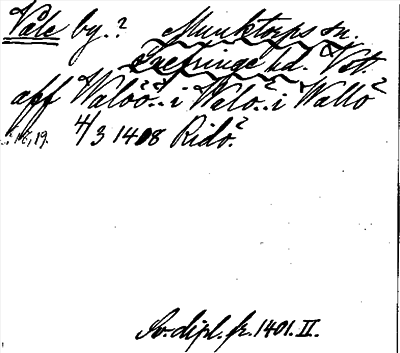 Våle by.? Munktorps sn.
Snefringe hd. Vstt.
aff Waloö.. i Welo.. i Wallö
4/3 1408 Ridö.
Sv. dipl. fr. 1401. II.